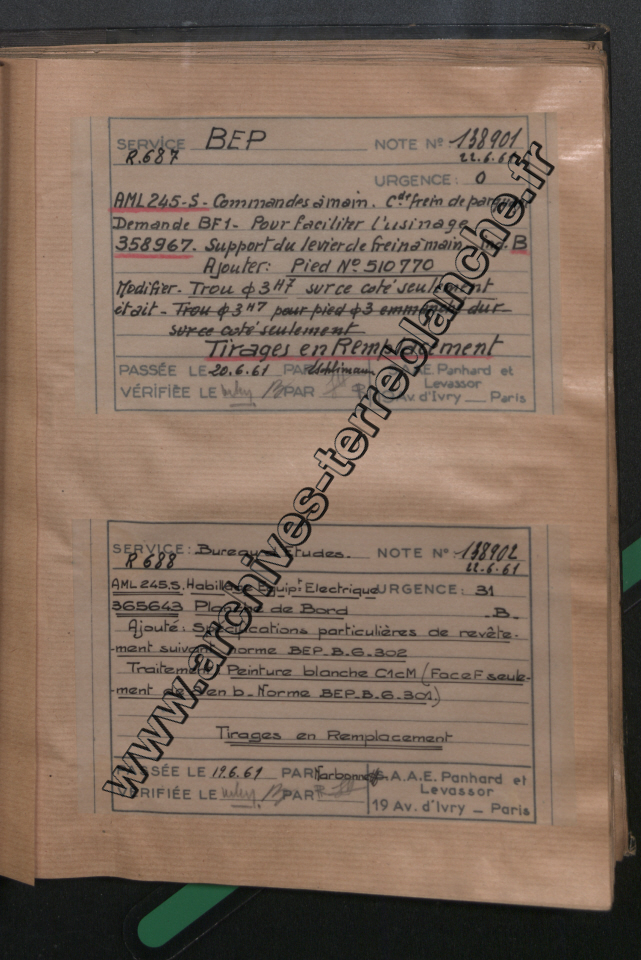 SERVICE BEP NOTE Nº 138901
R.687 22.6.61
URGENCE: 0
AML 245-S - Commandes à main. Cde frein de parquage
Demande BF1 - Pour faciliter l'usinage
358967. Support du levier de frein à main Ind. B
Ajouter: Pied Nº 510770
Modifier - Trou ϕ 3 H7 sur ce coté seulement
était - Trou ϕ 3 H7 pour pied ϕ 3 emmanché dur
sur ce coté seulement
Tirages en Remplacement
PASSÉE LE 20.6.61 PAR A.E. Panhard et
Levassor
VÉRIFIÉE LE PAR Av. d'Ivry _ Paris
SERVICE: Bureau Etudes. NOTE Nº 138902
R 688 22.6.61
AML 245.S. Habillage Equipt Electrique URGENCE: 31
365643 Planche de Bord B.
Ajouté: Spécifications particulières de revête-
ment suivant norme BEP_B.G.302
Traitement Peinture blanche C1cM (Face F seule-
ment en b_Norme BEP_B.G.301)
Tirages en Remplacement
PASSÉE LE 19.6.61 PAR Narbonne S.A.A.E. Panhard et
Levassor
VERIFIÉE LE PAR 19 Av. d'Ivry _ Paris
www.archives-terreblanche.fr